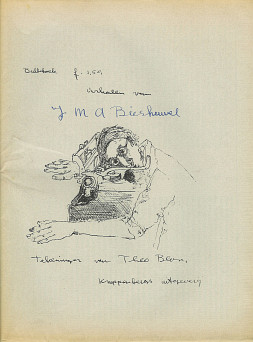 Bulkboek f. 1,50
verhalen van
J M A Biesheuvel
Tekeningen van Theo Blom,
Knippenberg's uitgeverij